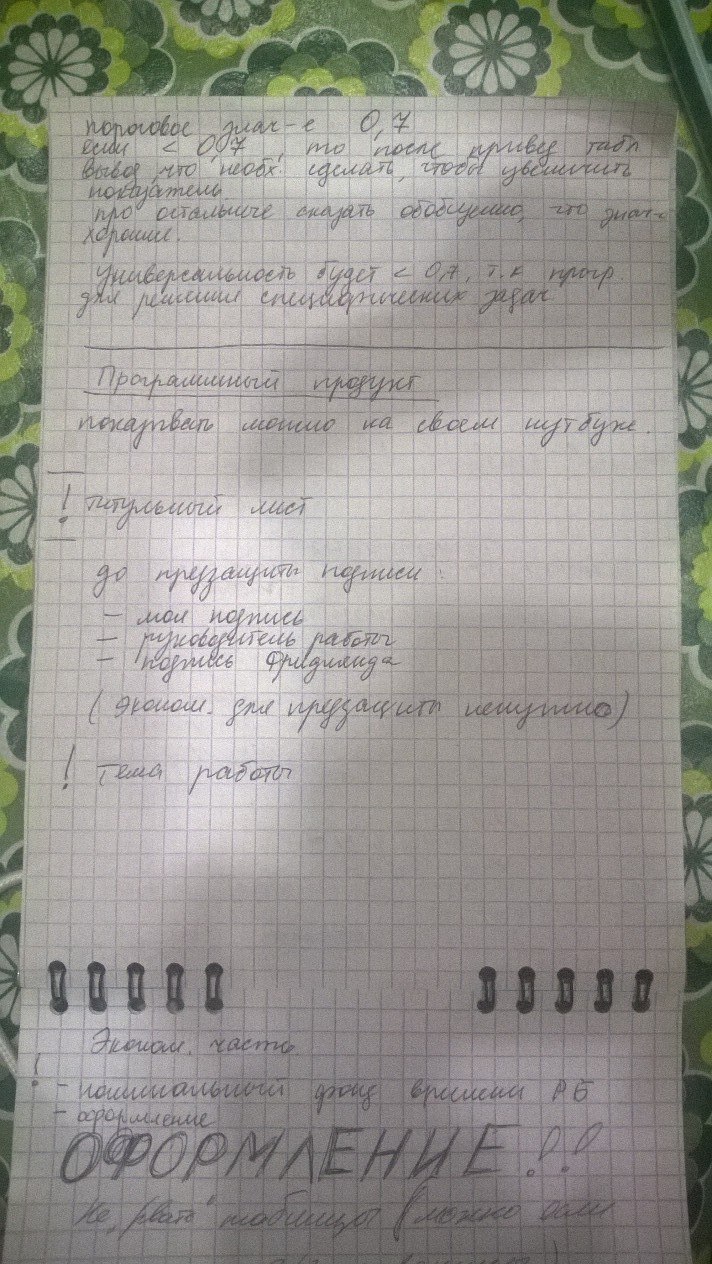 пороговое знач-е 0,7
если < 0,7, то после привед табл
вывод, что необх. сделать, чтобы увеличить
показатель
про остальные сказать обобщенно, что знач-
хорошие.
Универсальность будет < 0,7, т.к прогр.
для решения специфических задач
Программный продукт
показывать можно на своем нутбуке.
! титульный лист
до предзащиты подписи:
- моя подпись
- руководитель работы
- подпись Фридлянда
(эконом. для предзащиты ненужно)
! Тема работы
Эконом. часть
! - номинальный фонд времени РБ
- оформление
ОФОРМЛЕНИЕ!!
Не "рвать" таблицы (можно если